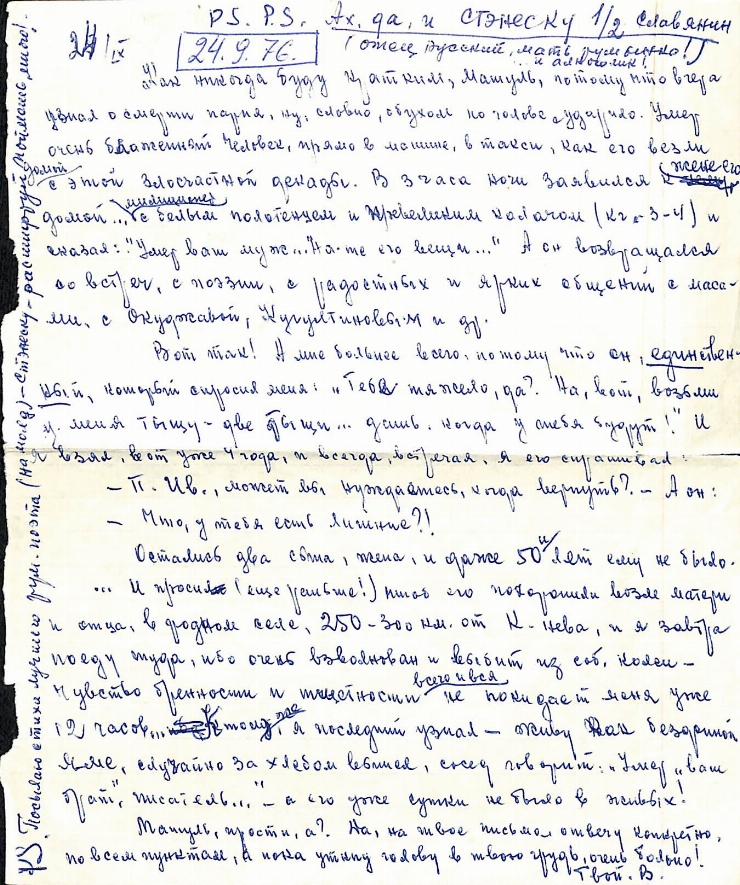 P.S. P.S. Ах, да, и СТЭНЕСКУ 1/2 Славянин
(отец русский, мать румынка!)
... и алкоголик!
24/IX
24.9.76.
Как никогда буду кратким, Машуль, потому что вчера
узнал о смерти парня, ну, словно, обухом по голове ударило. Умер
очень блаженный человек, прямо в машине, в такси, как его везли
домой
с этой злосчастной декады. В 3 часа ночи заявился к жене его
домой... милиционер с белым полотенцем и превеликим калачом (кг - 3-4) и
сказал: "Умер ваш муж... На-те его вещи..." А он возвращался
со встреч, с поэзии, с радостных и ярких общений с масса-
ми, с Окуджавой, Кугультиновым и др.
Вот так! А мне больнее всего, потому что он, единствен-
ный, который спросил меня: "Тебе тяжело, да? На, вот, возьми
у меня тыщу - две тыщи... дашь, когда у тебя будут!" И
я взял, вот уже 4 года, и всегда, встречая, я его спрашивал:
- П. Ив., может вы нуждаетесь, когда вернуть? - А он:
- Что, у тебя есть лишние?!
Остались два сына, жена, и даже 50и лет ему не было.
... И просил (еще раньше!) чтоб его похоронили возле матери
и отца, в родном селе, 250-300 км. от К-нева, и я завтра
поеду туда, ибо очень взволнован и выбит из соб. колеи -
чувство бренности и тщетности всего и вся не покидает меня уже
12 часов... К тому же, я последний узнал - живу как в бездонной
яме, случайно за хлебом вышел, сосед говорит: "Умер "ваш
брат", писатель..." - а его уже сутки не было в живых!
Машуль, прости, а? На, на твое письмо отвечу конкретно,
по всем пунктам, а пока уткну голову в твою грудь, очень больно!
Твой. В.
P.S. Посылаю стихи лучшего рум. поэта (на молд) - Стэнеску - расшифруй, поймаешь много!